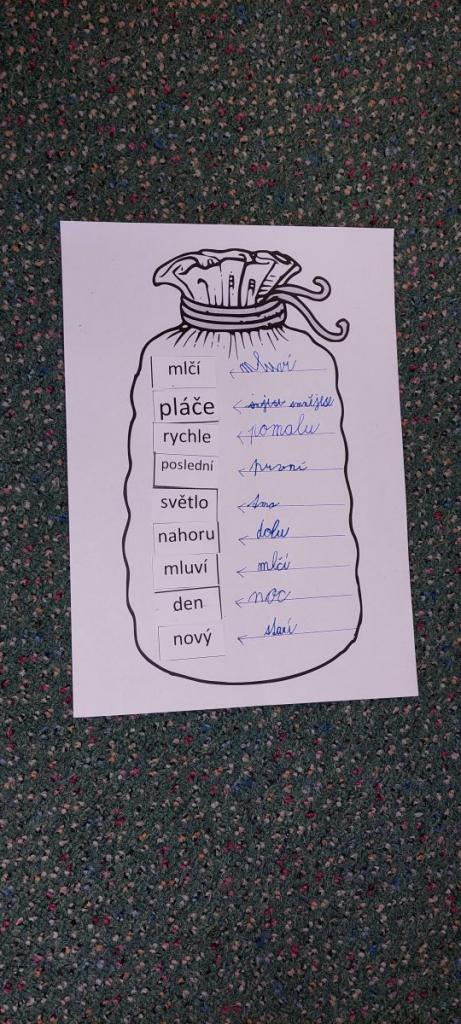 mlčí mluví
pláče
rychle pomalu
poslední první
světlo tma
nahoru dolu
mluví mlčí
den noc
nový starí